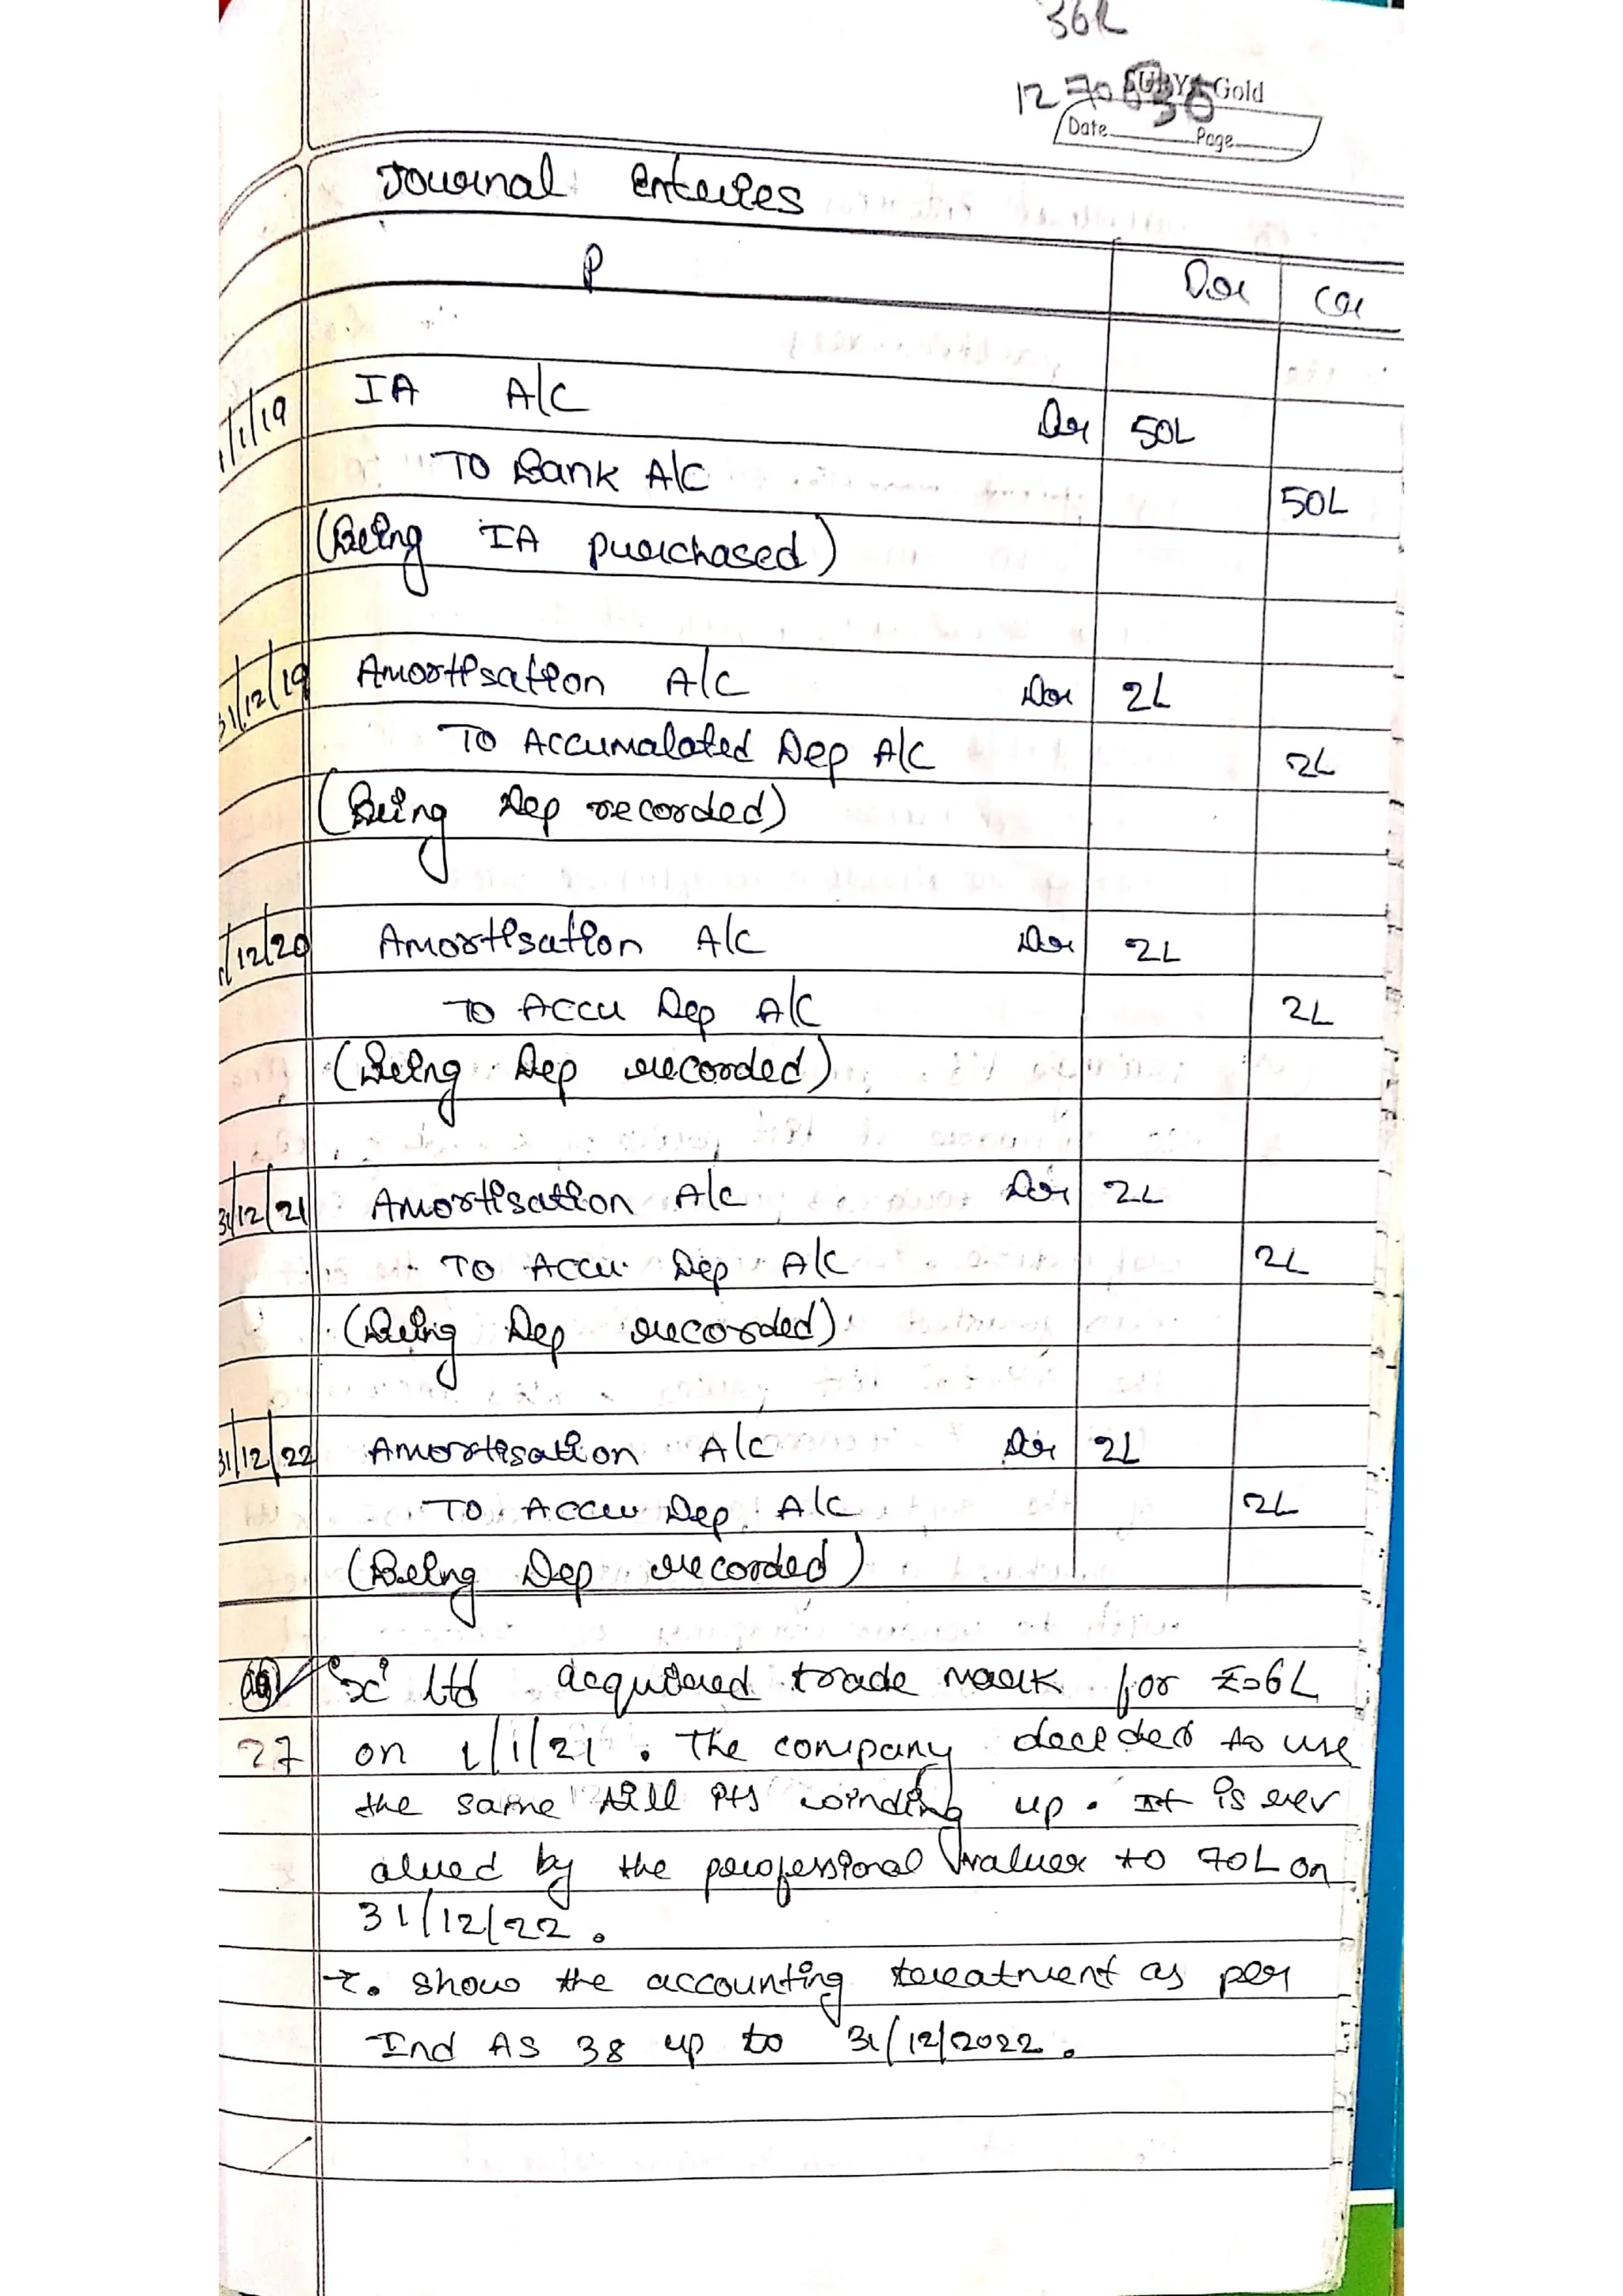 36L
SURYA Gold
Date Page
Journal enteries
P Dr Cr
1/1/19 IA A/C Dr 50L
TO Bank A/C 50L
(Being IA purchased)
31/12/19 Amortisation A/C Dr 2L
TO Accumalated Dep A/C 2L
(Being Dep recorded)
/12/20 Amortisation A/C Dr 2L
TO Accu Dep A/C 2L
(Being Dep recorded)
31/12/21 Amortisation A/C Dr 2L
TO Accu Dep A/C 2L
(Being Dep recorded)
31/12/22 Amortisation A/C Dr 2L
TO Accu Dep A/C 2L
(Being Dep recorded)
'x' ltd acquired trade mark for 6L
27 on 1/1/21. The company decided to use
the same till its winding up. It is ever
alued by the professional valuer to 70L on
31/12/22.
→. show the accounting treatment as per
Ind AS 38 up to 31/12/2022.